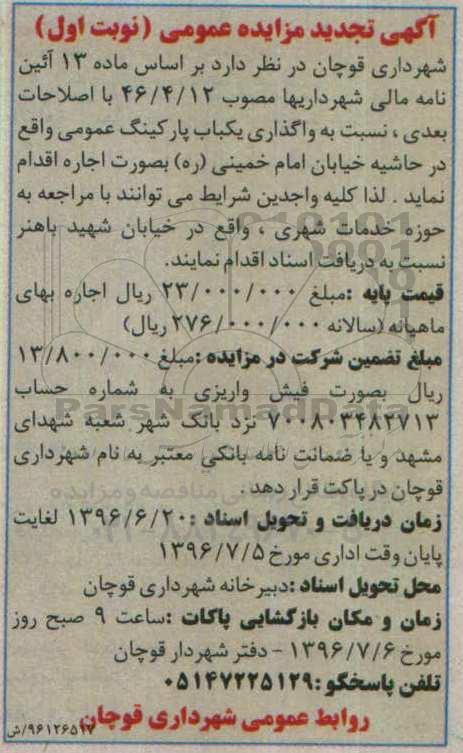 آگهی تجدید مزایده عمومی (نوبت اول)
شهرداری قوچان در نظر دارد بر اساس ماده ۱۳ آئین
نامه مالی شهرداریها مصوب ۴۶/۴/۱۲ با اصلاحات
بعدی ، نسبت به واگذاری یکباب پارکینگ عمومی واقع
در حاشیه خیابان امام خمینی (ره) بصورت اجاره اقدام
نماید . لذا کلیه واجدین شرایط می توانند با مراجعه به
حوزه خدمات شهری ، واقع در خیابان شهید باهنر
نسبت به دریافت اسناد اقدام نمایند.
قیمت پایه :مبلغ ۲۳/۰۰۰/۰۰۰ ریال اجاره بهای
ماهیانه (سالانه ۲۷۶/۰۰۰/۰۰۰ ریال)
مبلغ تضمین شرکت در مزایده :مبلغ ۱۳/۸۰۰/۰۰۰
ریال بصورت فیش واریزی به شماره حساب
۷۰۰۸۰۳۴۸۲۷۱۳ نزد بانک شهر شعبه شهدای
مشهد و یا ضمانت نامه بانکی معتبر به نام شهرداری
قوچان در پاکت قرار دهد .
زمان دریافت و تحویل اسناد :۱۳۹۶/۶/۲۰ لغایت
پایان وقت اداری مورخ ۱۳۹۶/۷/۵
محل تحویل اسناد :دبیرخانه شهرداری قوچان
زمان و مکان بازگشایی پاکات :ساعت ۹ صبح روز
مورخ ۱۳۹۶/۷/۶ - دفتر شهردار قوچان
تلفن پاسخگو :۰۵۱۴۷۲۲۵۱۲۹
روابط عمومی شهرداری قوچان
۹۶۱۲۶۵۱۷/ش
ParsNamadData